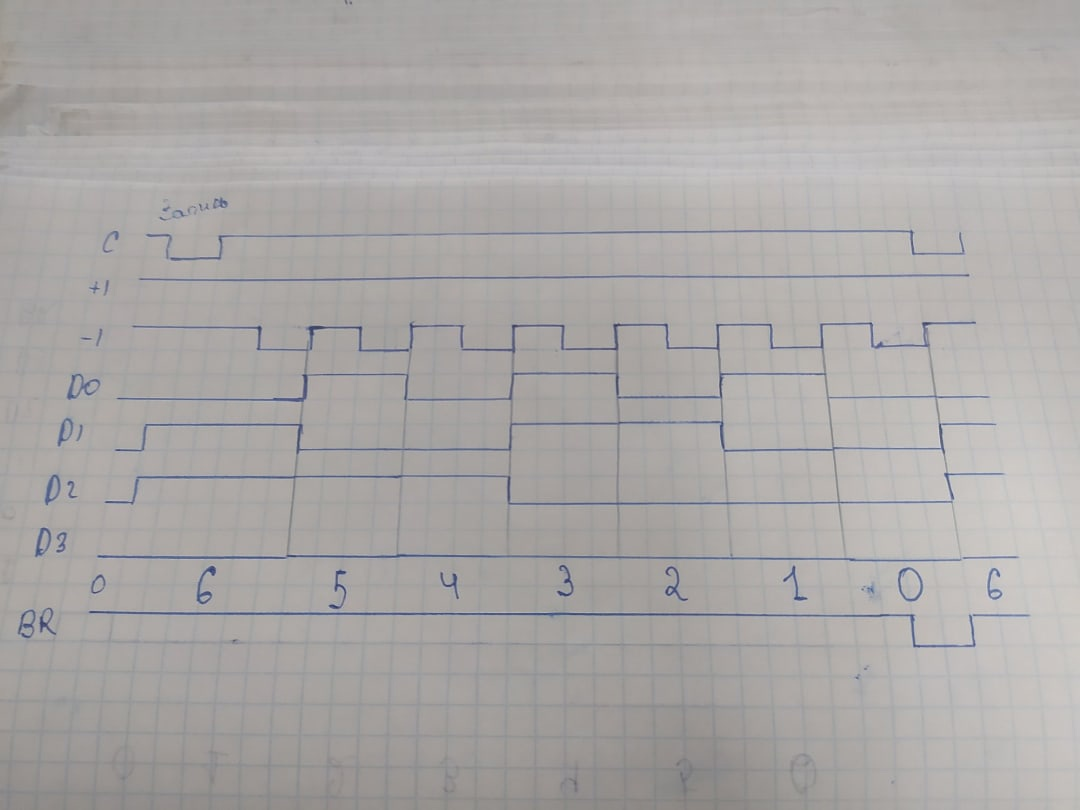 Запись
C
+1
-1
D0
D1
D2
D3
0 6 5 4 3 2 1 0 6
BR